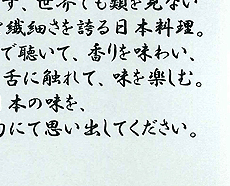 ず、世界でも類を見ない
繊細さを誇る日本料理。
で聴いて、香りを味わい、
舌に触れて、味を楽しむ。
本の味を、
にて思い出してください。